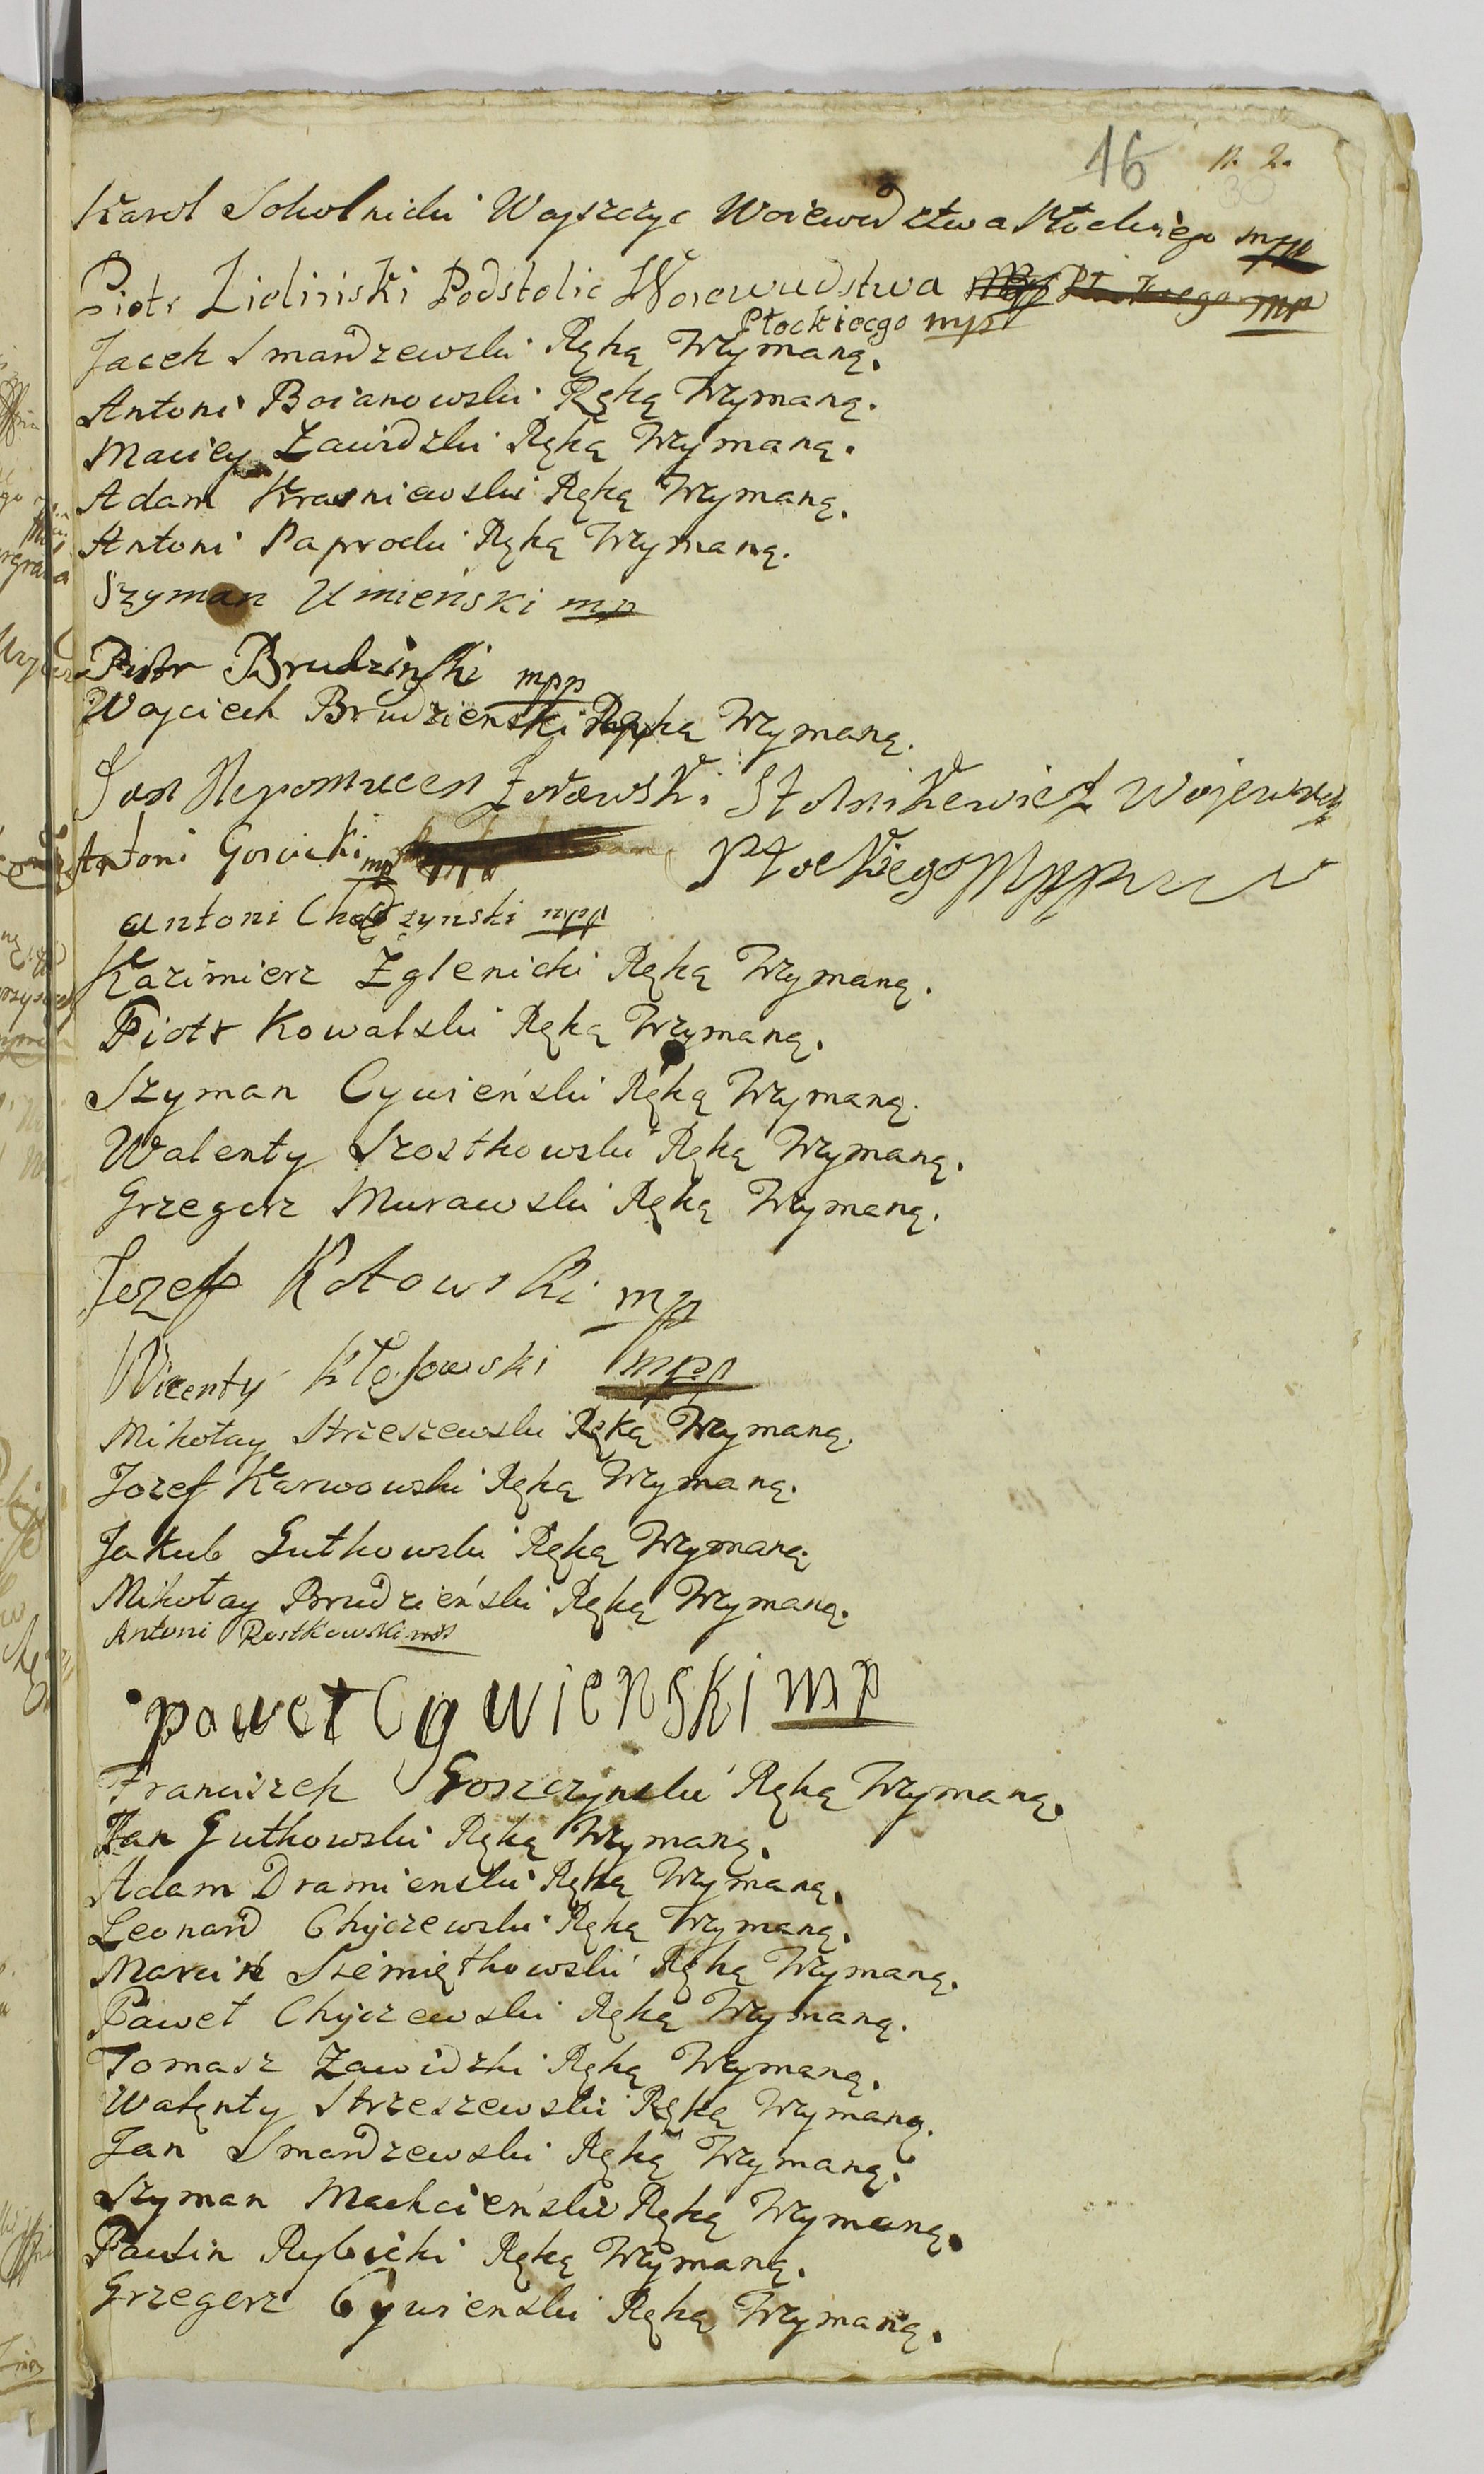 16 n. 2.
30
Karol Sokolnicki Woyszczyc Woiewodztwa Płockiego mpp
Piotr Zieliński Podstolic Worewudstwa mp
Płockiecgo mpp
Jacek Smardzewski Ręką Trzymaną.
Antoni Boianowski Ręką Trzymaną.
Maciey Zawidzki Ręką Trzymaną.
Adam Krasniewski Ręką Trzymaną.
Antoni Paprocki Ręką Trzymaną.
Szyman Umieński mp
Piotr Brudzinski mpp
Woyciech Brudzienski Ręką Trzymaną.
Jan Nepomucen Stolnikewicz
Antoni Gorcicki mp Płockiego mpp
antoni Chądzynski mpp
Kazimierz Zglenicki Ręką Trzymaną.
Piotr Kowalski Ręką Trzymaną.
Szyman Cywieński Ręką Trzymaną.
Walenty Szostkowski Ręką Trzymaną.
Grzegorz Murawski Ręką Trzymaną.
Jozeff Kotowski mp
Wicenty Kłosowski mpp
Mikołay Strzeszewski Ręką Trzymaną.
Jozef Karwowski Ręką Trzymaną.
Jakub Gutkowski Ręką Trzymaną.
Mikołay Brudzieński Ręką Trzymaną.
Antoni Rostkowski mp
paweł Cywienski mp
Franciszek Goszczynski Ręką Trzymaną.
Jan Gutkowski Ręką Trzymaną.
Adam Dramienski Ręką Trzymaną.
Leonard Chyczewski Ręką Trzymaną.
Marcin Siemiątkowski Ręką Trzymaną.
Paweł Chyczewski Ręką Trzymaną.
Tomasz Zawidzki Ręką Trzymaną.
Walęnty Strzeszewski Ręką Trzymaną.
Jan Smardzewski Ręką Trzymaną.
Szyman Machcieński Ręką Trzymaną.
Paulin Rybicki Ręką Trzymaną.
Grzegorz Cywienski Ręką Trzymaną.